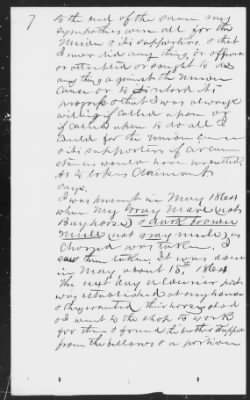 7
to the end of the same my
sympathies were all for the
Union & its supporters & that
I never did any thing, or offered
or attempted or sought to do
any thing against the Union
Cause or to its
progress & that I was always
willing if Called upon or
if Called upon to do all I
Could for the Union Cause
& its supporters if circum
stances would have warranted.
As to losses Claimant
says.
I was present in May 1864
when my Gray Mare (not
Bay horse) & dark brown
Mule (not gray mule) now
Charged was taken. I
saw them taken. It was done
in May about 18th 1864
The next day a Courier post
was established at my house
& they wanted their horses shod
& I went to the shop to work
for them & found
from the bellows & a portion